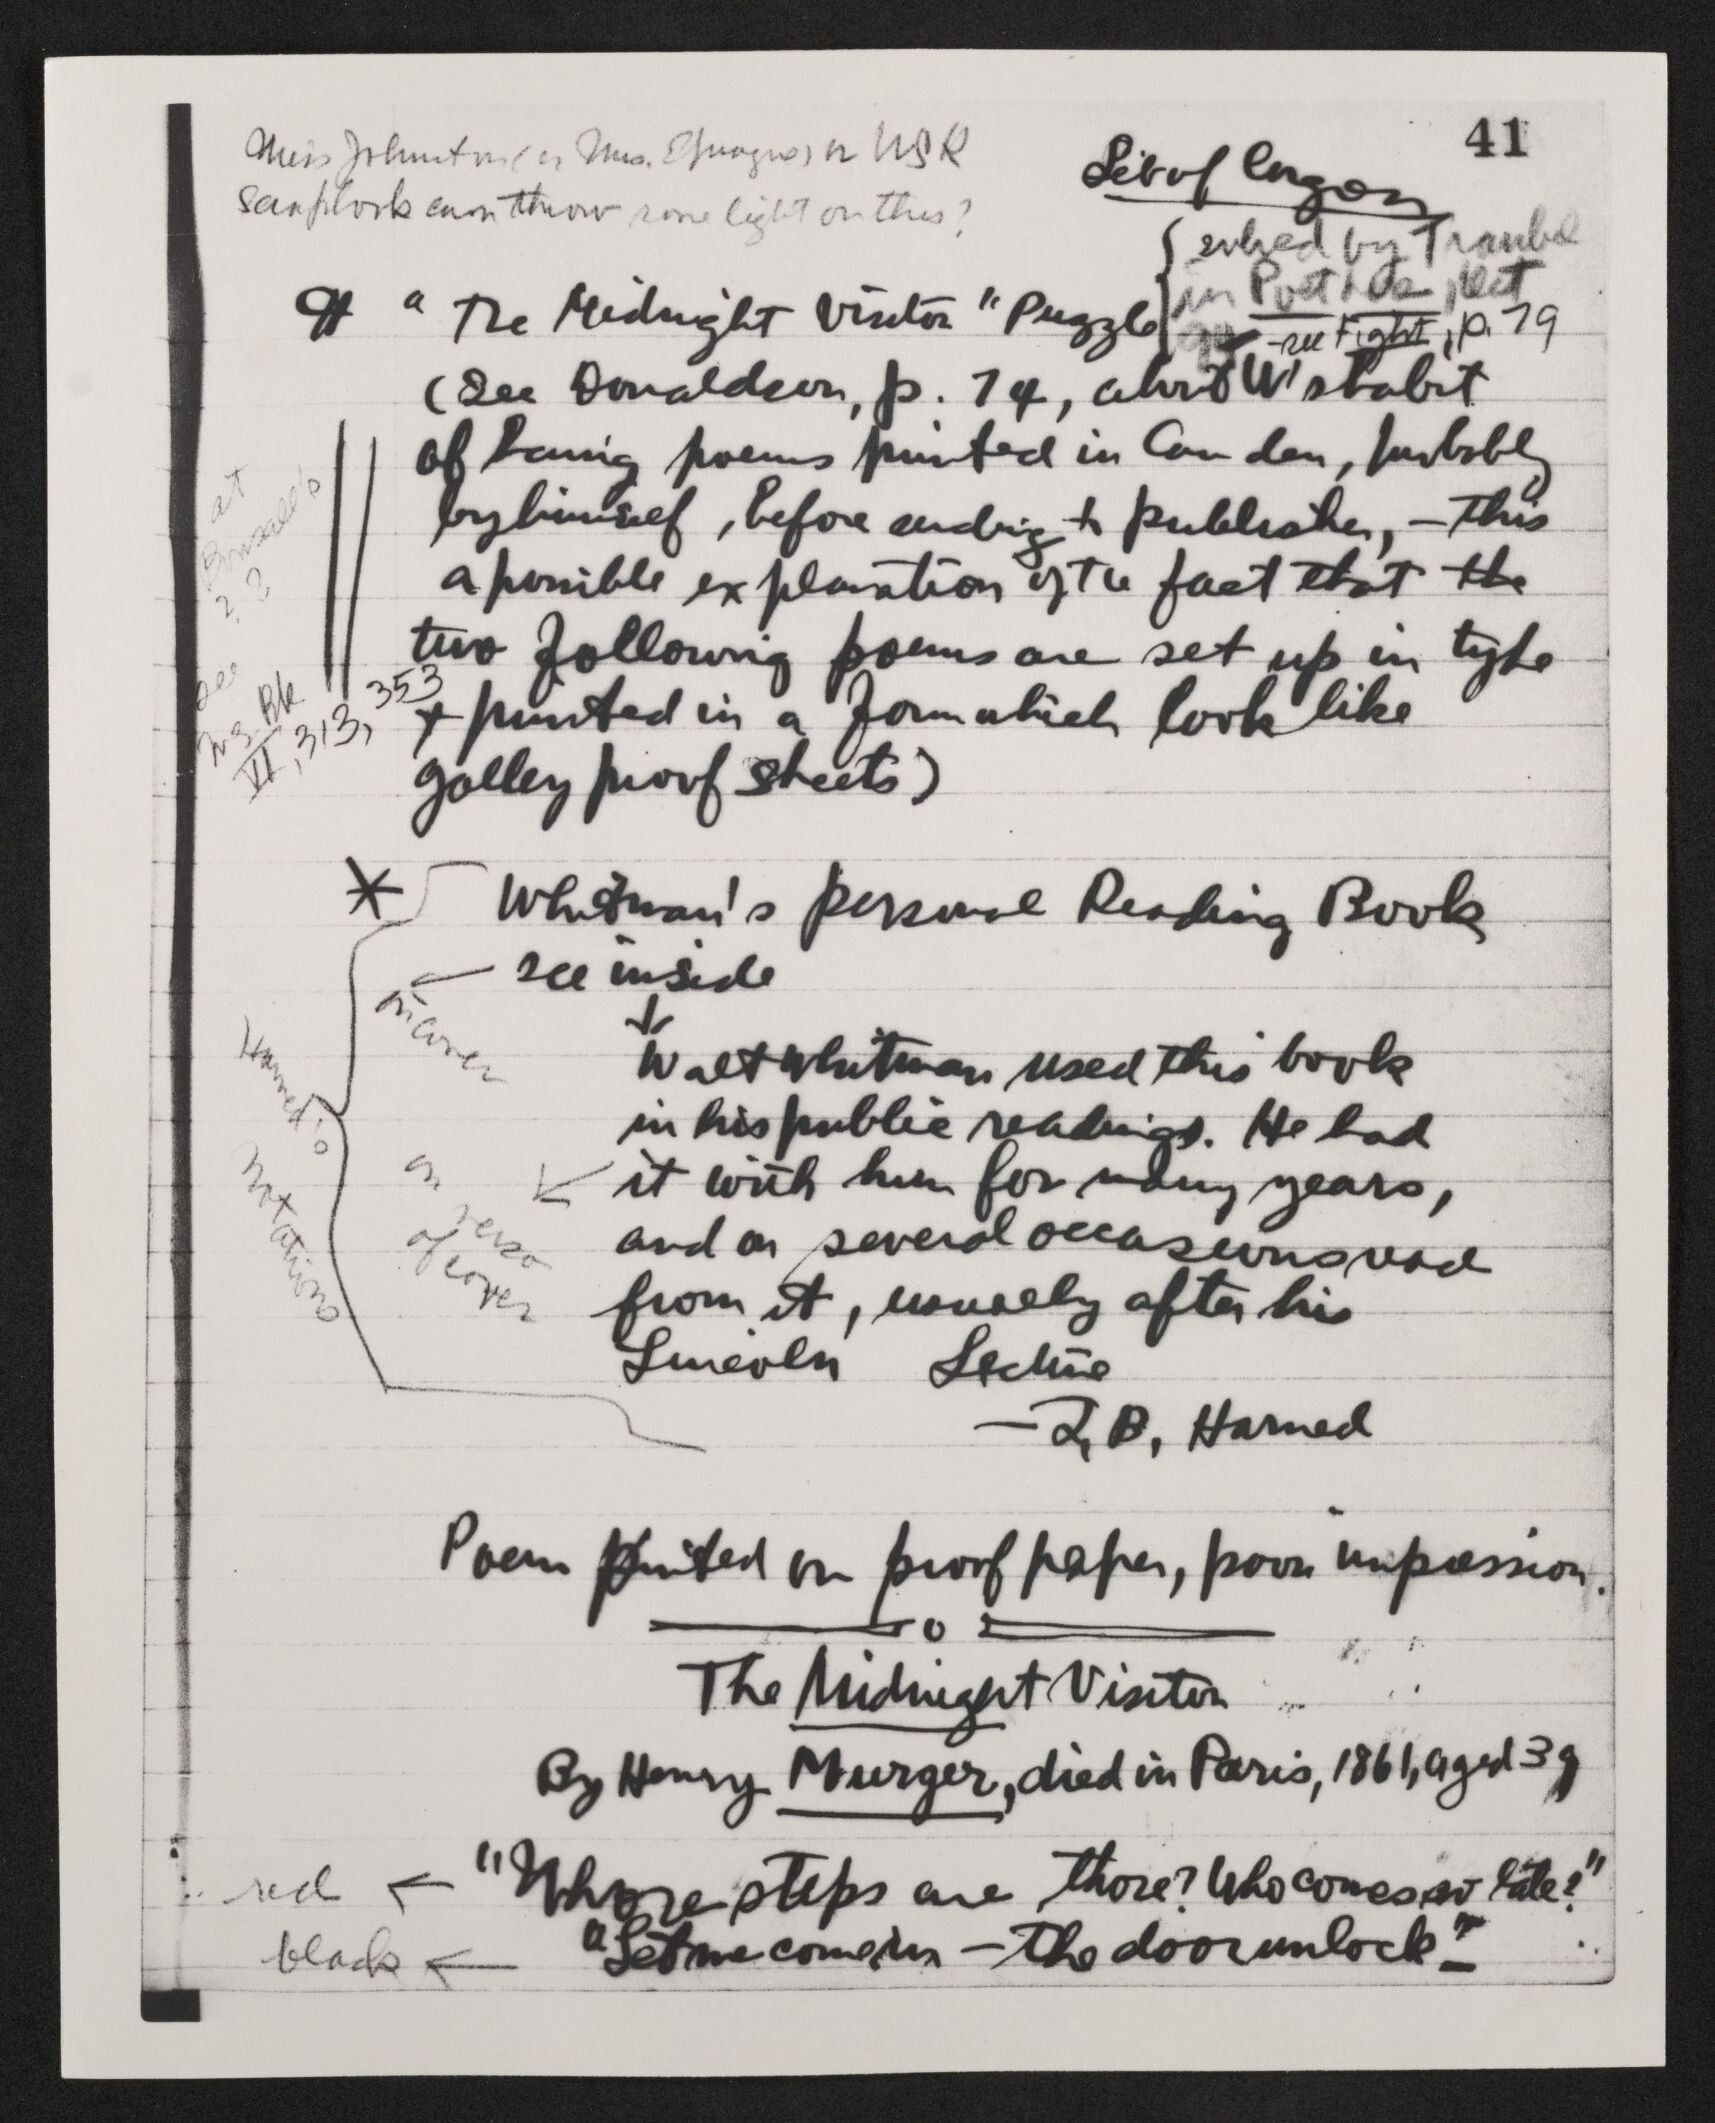 41
Miss Johnston (or Mrs. Sprague) or WSK
scrapbook can throw some light on this?
Lib of Congress
solved by Traubel
in Poet
see Fight, p. 79
¶ "The Midnight Visitor" Puzzle
(See Donaldson, p. 74, about W's habit
of having poems printed in Camden, probably
by himself, before sending to publisher, — this
a possible explanation of the fact that the
two following poems are set up in type
+ printed in a form which look like
galley proof sheets)
at
??
see
Bk
VI, 313, 353
* Whitman's Personal Reading Book
← see inside
on cover
↓
Walt Whitman used this book
in his public readings. He had
← it with him for many years,
and on several occasions read
from it, usually after his
Lincoln Lecture
— T. B. Harned
on verso
of cover
Harned's
notations
Poem printed on proof paper, poor impression.
o
The Midnight Visitor
By Henry Murger, died in Paris, 1861, aged 39
red ← "Whose steps are those? Who comes so late?"
black ← "Let me come in — the door unlock."